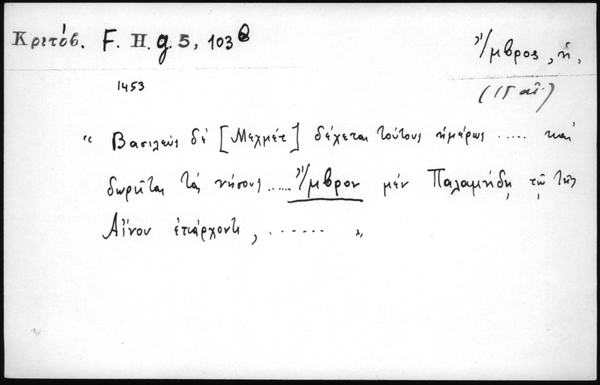 Κριτόβ. F. H. g. 5, 103β
Ἴμβρος, ἡ,
(15 αἰ.)
1453
" Βασιλεὺς δὲ [Μεχμέτ] δέχεται τούτους ἡμέρως ..... καὶ
δωρεῖται τὰς νήσους ..... Ἴμβρον μὲν Παλαμήδῃ τῷ τῆς
Αἴνου ἐπάρχοντι, ...... "